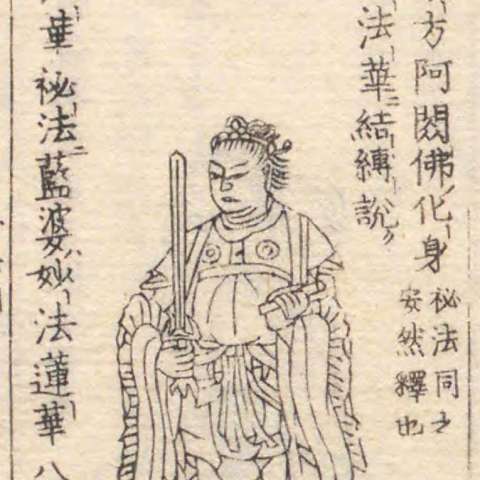 方阿閦佛化身
祕法同之
安然釋也
法華結縛說
華祕法藍婆妙法蓮華八